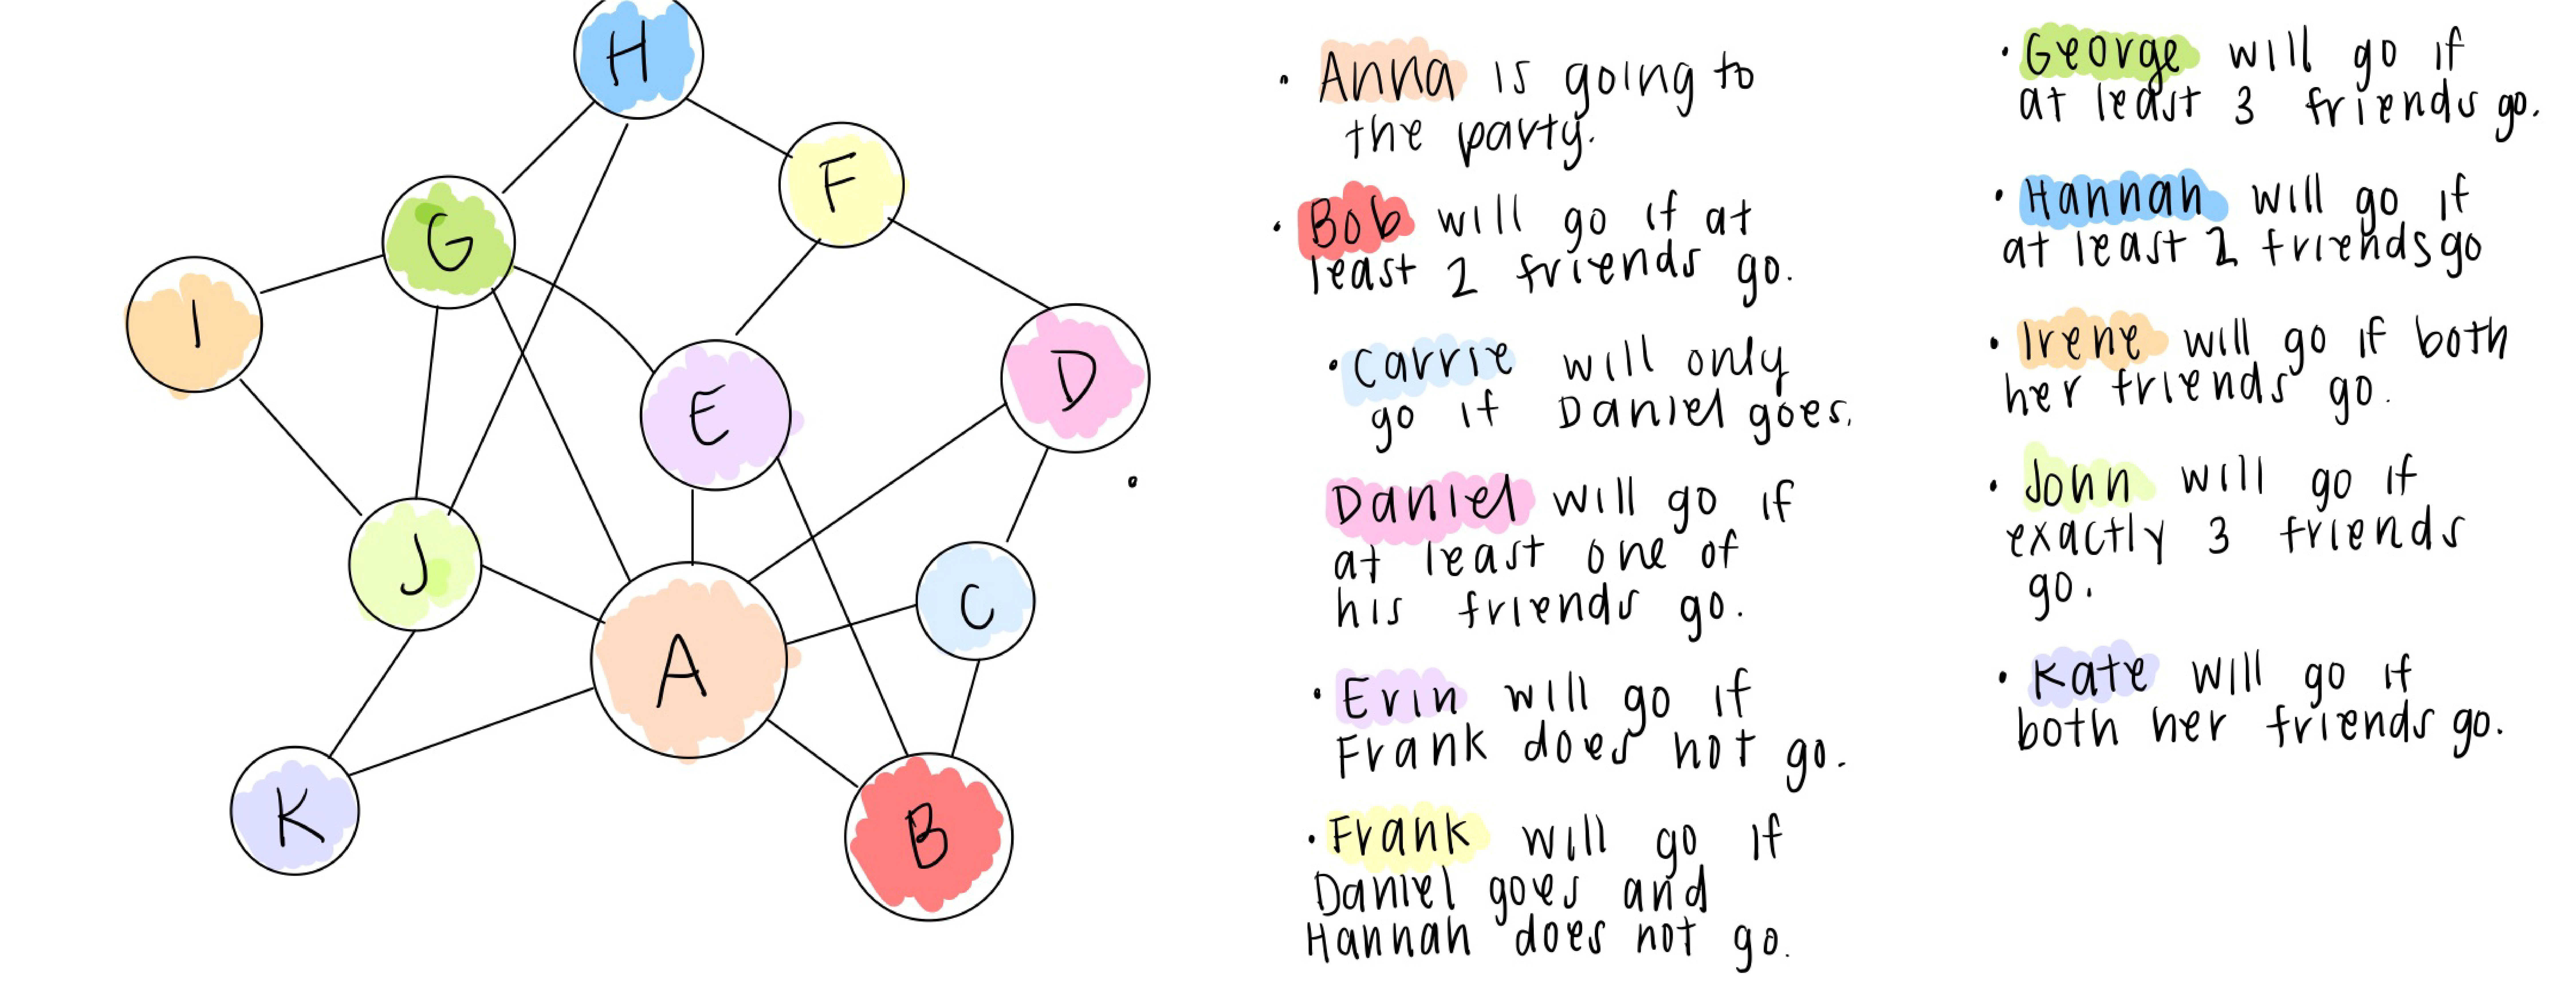 H
F
G
I
E
D
J
C
A
K
B
• Anna is going to
the party.
• Bob will go if at
least 2 friends go.
• Carrie will only
go if Daniel goes.
• Daniel will go if
at least one of
his friends go.
• Erin will go if
Frank does not go.
• Frank will go if
Daniel goes and
Hannah does not go.
• George will go if
at least 3 friends go.
• Hannah will go if
at least 2 friends go
• Irene will go if both
her friends go.
• John will go if
exactly 3 friends
go.
• Kate will go if
both her friends go.